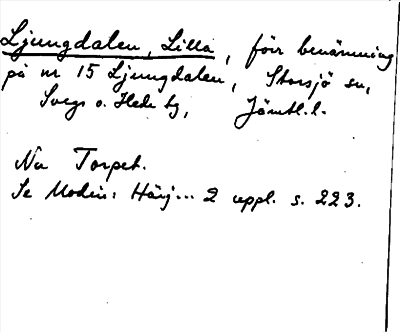 Ljungdalen, Lilla, förr benämning
på nr 15 Ljungdalen, Storsjö sn,
Svegs o. Hede tg, Jämtl.l.
Nu Torpet.
Se Modin: Härj... 2 uppl. s. 223.